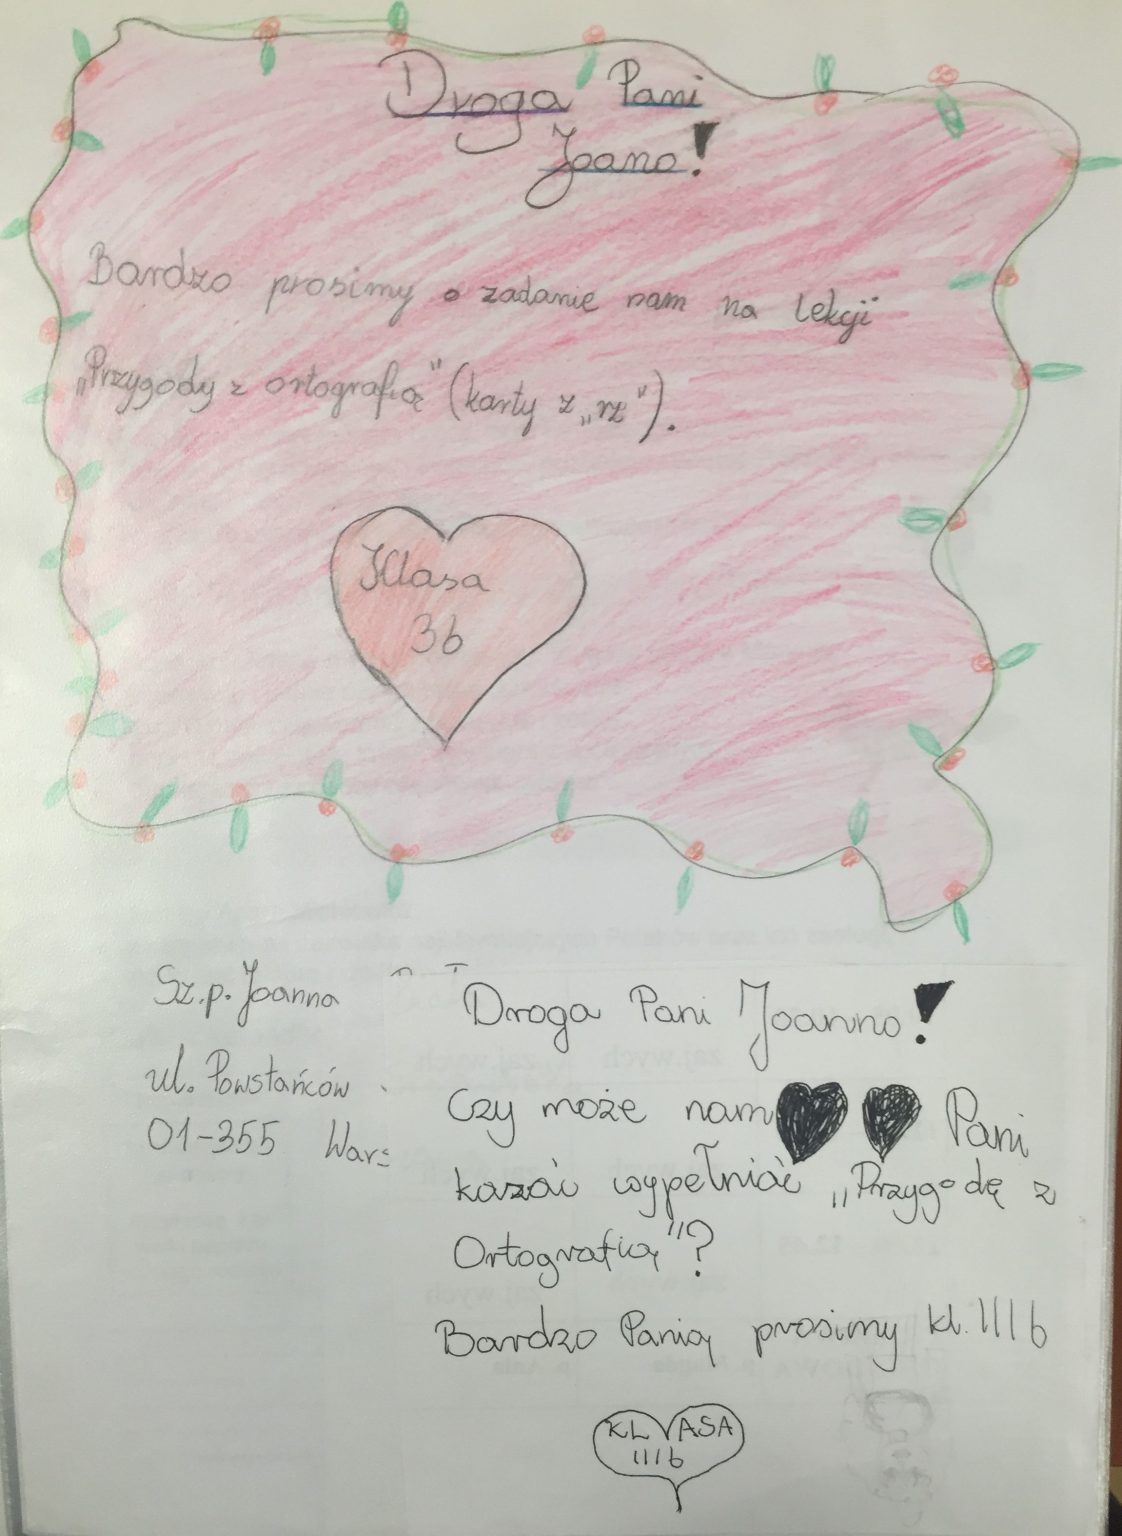 Droga Pani
Joano!
Bardzo prosimy o zadanie nam na lekcji
„Przygody z ortografią” (karty z „rz”).
Klasa
3b
Sz.p. Joanna
ul. Powstańców
01-355 Wars
Droga Pani Joanno!
Czy może nam Pani
kazać wypełniać „Przygodę z
Ortografią”?
Bardzo Panią prosimy kl. III b
KLASA
III b